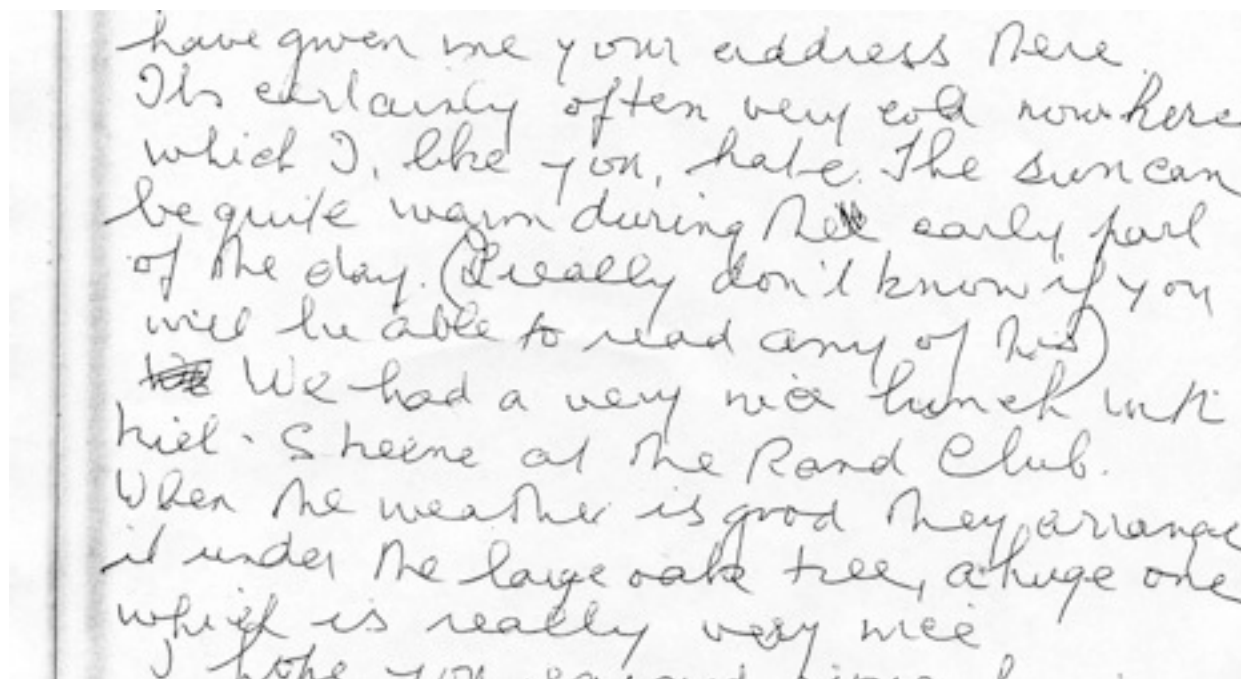 have given me your address there
Its certainly often very cold now here
which I, like you, hate. The sun can
be quite warm during the early part
of the day. (I really don't know if you
will be able to read any of this)
We had a very nice lunch with
Sheene at the Rand Club.
When the weather is good they arrange
it under the large oak tree, a huge one
which is really very nice
I hope you